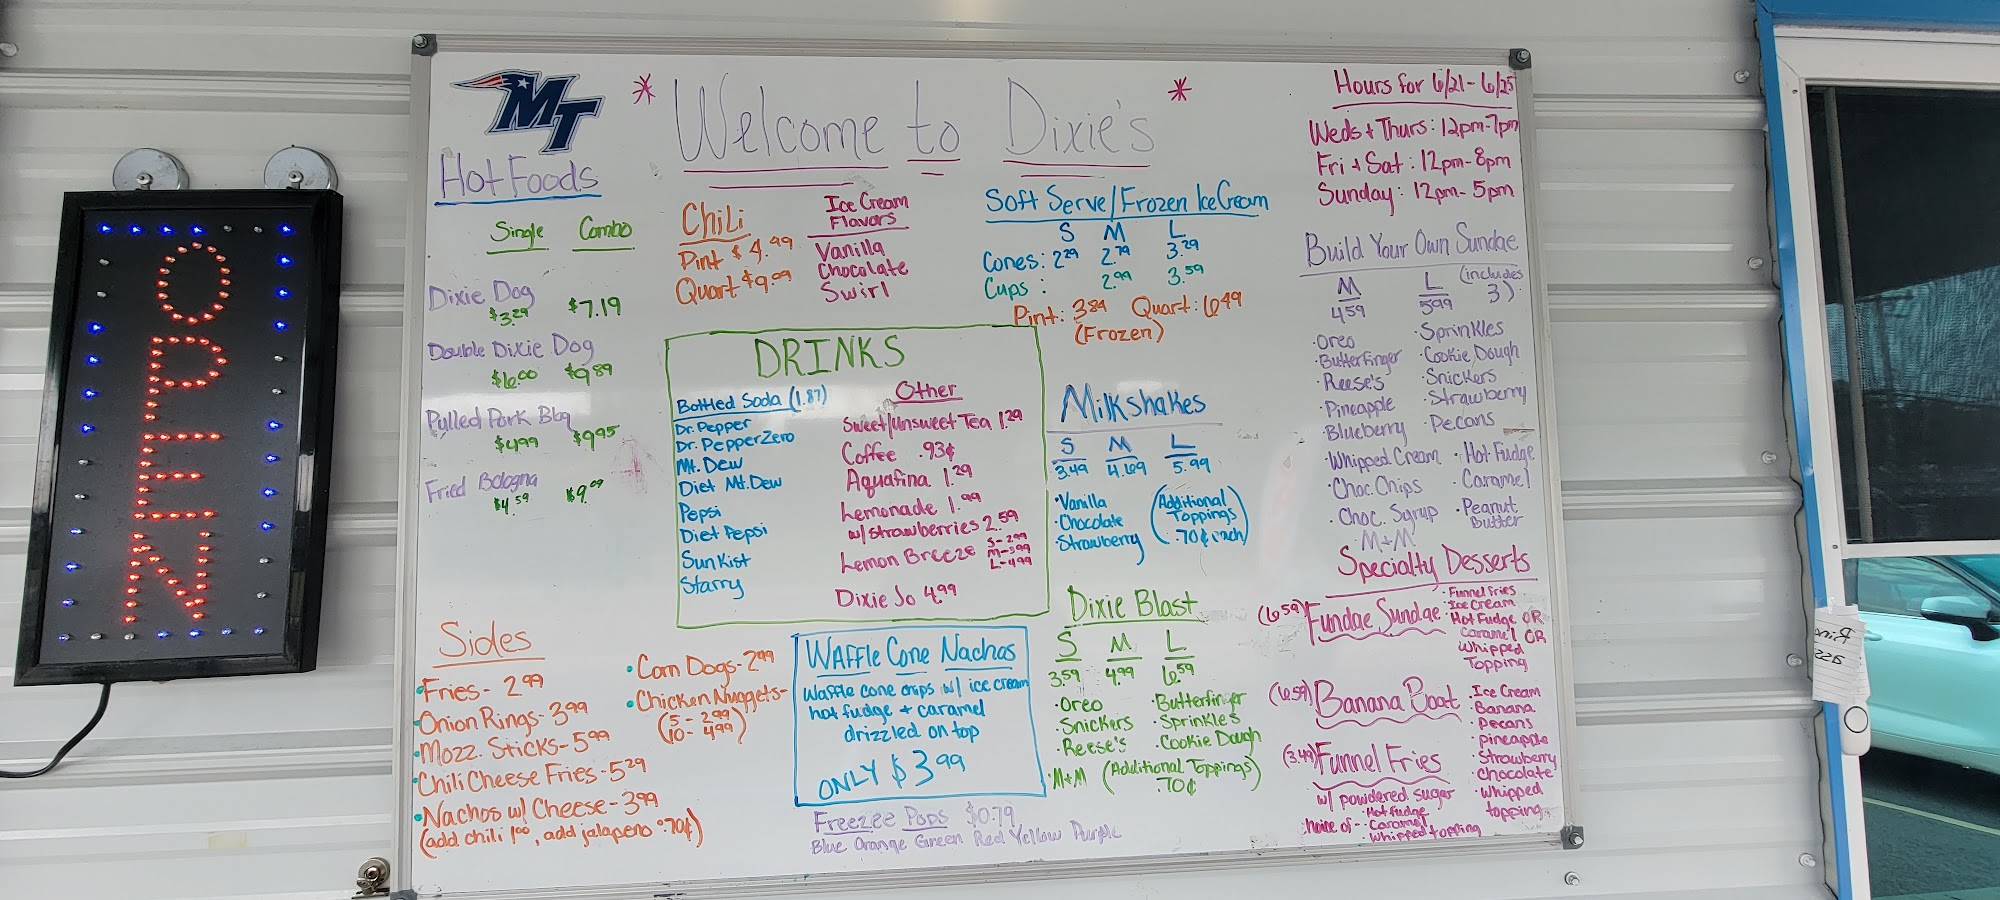 OPEN
MT
* Welcome to Dixie's *
Hot Foods
Single Combo
Dixie Dog
$3.29 $7.19
Double Dixie Dog
$6.00 $9.89
Pulled Pork Bbq
$4.99 $9.95
Fried Bologna
$4.59 $9.09
Chili
Pint $4.99
Quart $9.09
Ice Cream
Flavors
Vanilla
Chocolate
Swirl
Soft Serve/Frozen Ice Cream
S M L
Cones: 2.29 2.79 3.29
Cups: 2.99 3.59
Pint: 3.84 Quart: 6.49
(Frozen)
Hours for 6/21-6/25
Weds + Thurs: 12pm-7pm
Fri + Sat: 12pm-8pm
Sunday: 12pm-5pm
DRINKS
Bottled Soda (1.87)
Dr. Pepper
Dr. Pepper Zero
Mt. Dew
Diet Mt. Dew
Pepsi
Diet Pepsi
Sunkist
Starry
Other
Sweet/Unsweet Tea 1.29
Coffee .93¢
Aquafina 1.29
Lemonade 1.99
w/ strawberries 2.59
Lemon Breeze S-2.99
M-3.99
L-4.99
Dixie Jo 4.99
Milkshakes
S M L
3.49 4.69 5.99
·Vanilla
·Chocolate
·Strawberry
(Additional
Toppings
.70¢ each)
Build Your Own Sundae
M L (includes
4.59 5.99 3)
·Oreo
·Butterfinger
·Reese's
·Pineapple
·Blueberry
·Whipped Cream
·Choc. Chips
·Choc. Syrup
·M+M
·Sprinkles
·Cookie Dough
·Snickers
·Strawberry
·Pecans
·Hot Fudge
·Caramel
·Peanut
Butter
Sides
·Fries- 2.99
·Onion Rings- 3.99
·Mozz. Sticks- 5.99
·Chili Cheese Fries- 5.29
·Nachos w/ Cheese- 3.99
(add chili 1.00, add jalapeno 0.70¢)
·Corn Dogs- 2.99
·Chicken Nuggets-
(5- 2.99
10- 4.99)
Waffle Cone Nachos
Waffle cone chips w/ ice cream
hot fudge + caramel
drizzled on top
ONLY $3.99
Freezee Pops $0.79
Blue Orange Green Red Yellow Purple
Dixie Blast
S M L
3.59 4.99 6.59
·Oreo
·Snickers
·Reese's
·M+M
·Butterfinger
·Sprinkles
·Cookie Dough
(Additional Toppings)
.70¢
Specialty Desserts
(6.59) Fundae Sundae
·Funnel Fries
·Ice Cream
·Hot Fudge OR
Caramel OR
Whipped
Topping
(6.59) Banana Boat
·Ice Cream
·Banana
·Pecans
·Pineapple
·Strawberry
·Chocolate
·Whipped
topping
(3.49) Funnel Fries
w/ powdered sugar
·Hot Fudge
·Caramel
·Whipped topping